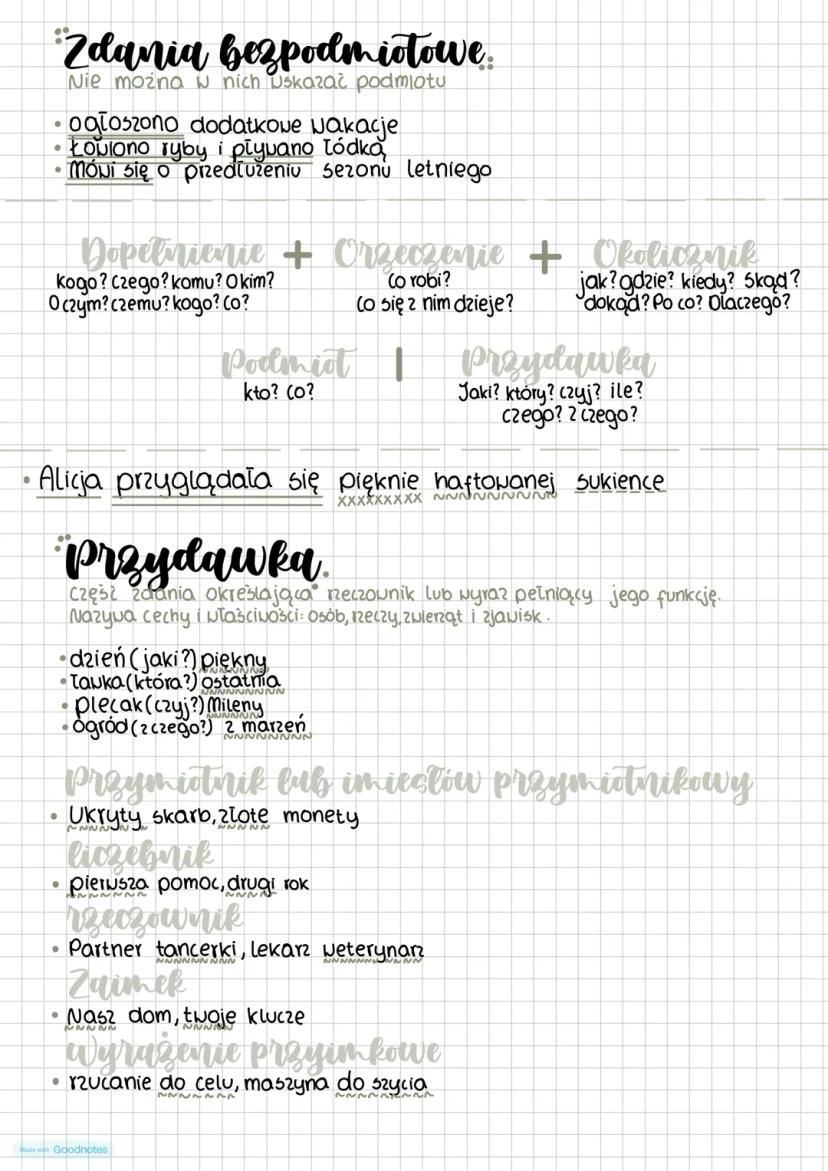 Zdania bezpodmiotowe
Nie można w nich wskazać podmiotu
• ogłoszono dodatkowe wakacje
• Łowiono ryby i pływano łódką
• Mówi się o przedłużeniu sezonu letniego
Dopełnienie + Orzeczenie + Okolicznik
Kogo? Czego? komu? O kim? Co robi? jak? gdzie? kiedy? Skąd?
O czym? czemu? kogo? Co? Co się z nim dzieje? dokąd? Po co? Dlaczego?
Podmiot | Przydawka
kto? Co? Jaki? który? czyj? ile?
czego? z czego?
• Alicja przyglądała się pięknie haftowanej sukience
xxxxxxxxx
Przydawka
Część zdania określająca rzeczownik lub wyraz pełniący jego funkcję.
Nazywa cechy i właściwości: osób, rzeczy, zwierząt i zjawisk.
• dzień (jaki?) piękny
• ławka (która?) ostatnia
• plecak (czyj?) Mileny
• ogród (z czego?) z marzeń
Przymiotnik lub imiesłów przymiotnikowy
• Ukryty skarb, złote monety
liczebnik
• pierwsza pomoc, drugi rok
rzeczownik
• Partner tancerki, lekarz weterynarz
Zaimek
• Nasz dom, twoje klucze
Wyrażenie przyimkowe
• rzucanie do celu, maszyna do szycia
Made with Goodnotes